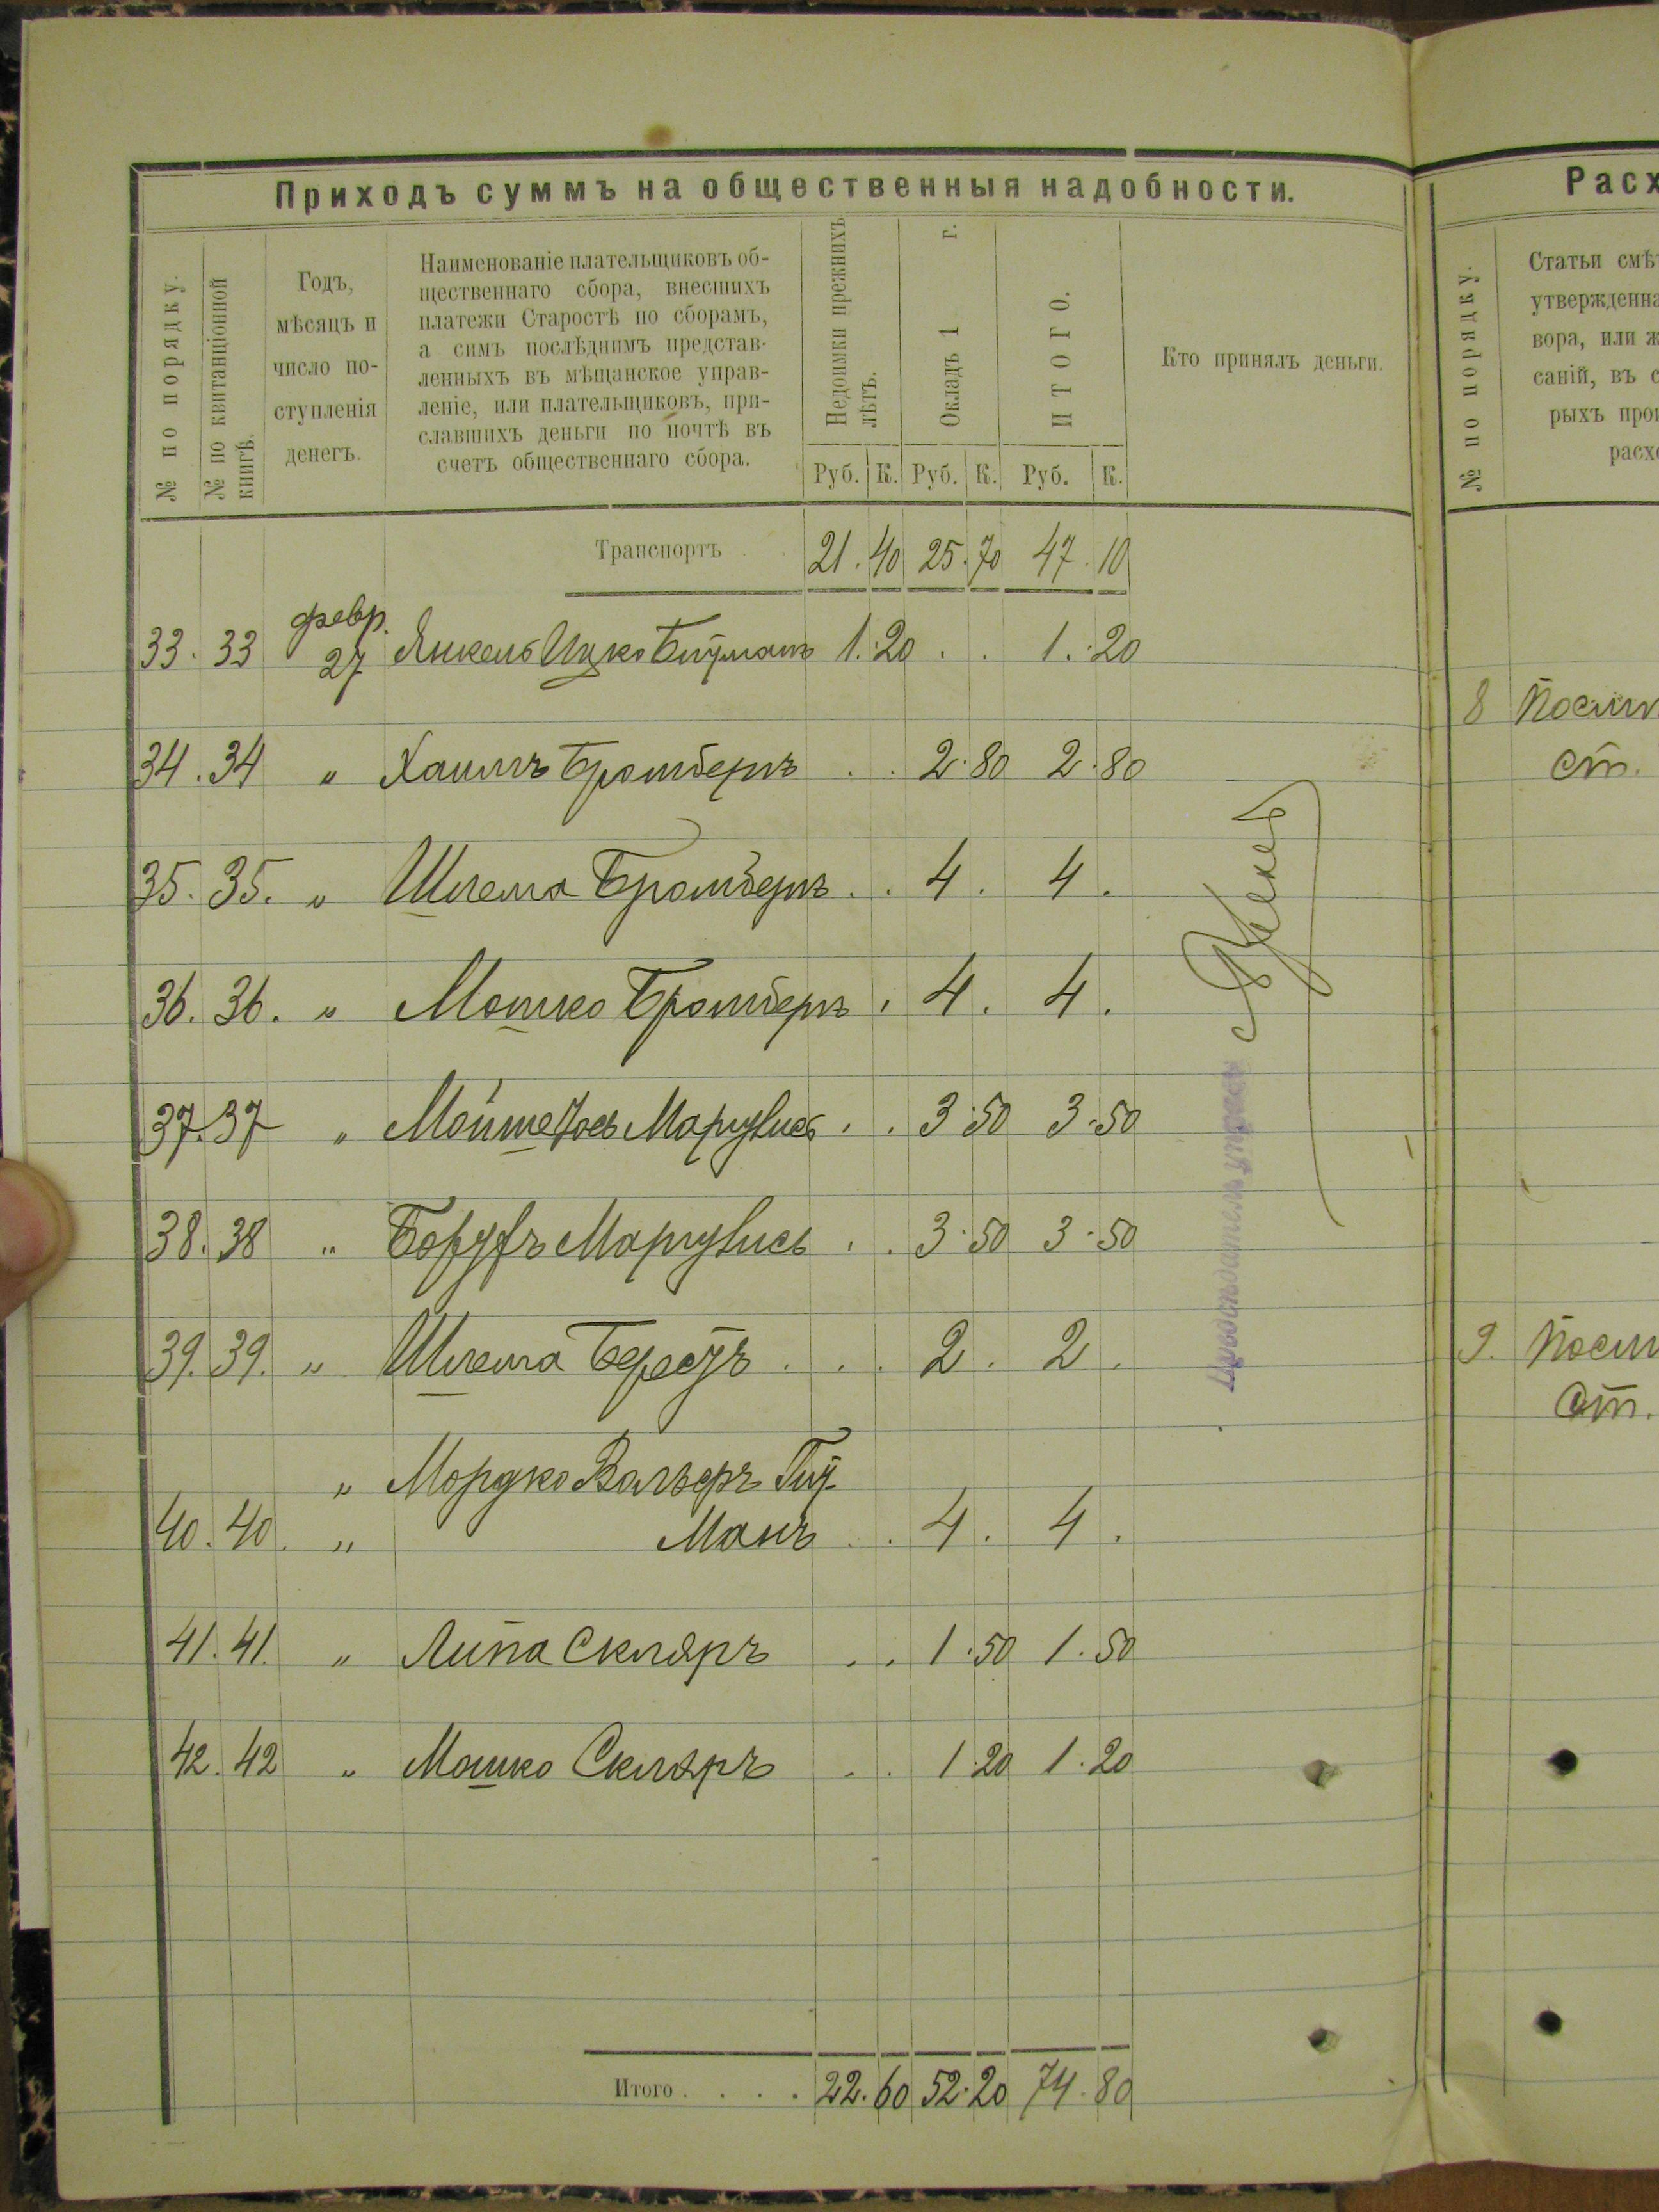 Приходъ суммъ на общественныя надобности.
№ по порядку.
№ по квитанціонной книгѣ.
Годъ,
мѣсяцъ и
число по-
ступленія
денегъ.
Наименованіе плательщиковъ об-
щественнаго сбора, внесшихъ
платежи Старостѣ по сборамъ,
а симъ послѣднимъ представ-
ленныхъ въ мѣщанское управ-
леніе, или плательщиковъ, при-
славшихъ деньги по почтѣ въ
счетъ общественнаго сбора.
Недоимки прежнихъ лѣтъ.
Окладъ 1 г.
ИТОГО.
Кто принялъ деньги.
Руб. К. Руб. К. Руб. К.
Транспортъ 21. 40 25. 70 47. 10
февр.
33. 33 27 Янкель Ицко 1. 20 . . 1. 20
34. 34 " Хаимъ Бромбергъ . . 2. 80 2. 80
35. 35. " Шлема Бромбергъ . . 4. 4.
36. 36. " Мошко Бромбергъ . 4. 4.
37. 37 " Мойше Іось Маргулисъ . . 3. 50 3. 50
38. 38 " Борухъ Маргулисъ . . 3. 50 3. 50
39. 39. " Шлема . . . 2. 2.
" Мордко
40. 40. " Манъ . . 4. 4.
41. 41. " Липа Скляръ . . 1. 50 1. 50
42. 42 " Мошко Скляръ . . 1. 20 1. 20
Итого . . . . 22. 60 52. 20 74. 80
Расх
№ по порядку.
Статьи смѣ
утвержденна
вора, или ж
саній, въ с
рыхъ прои
расхо
8
ст.
9.
ст.